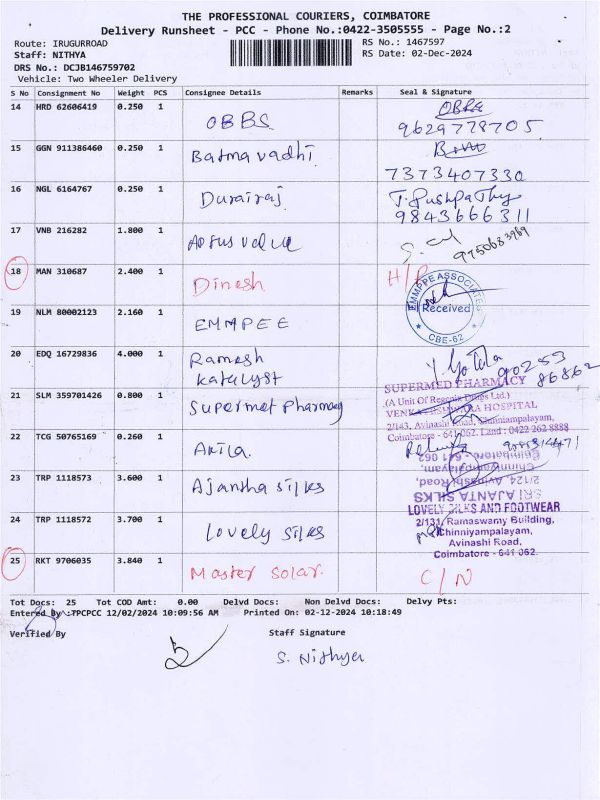 THE PROFESSIONAL COURIERS, COIMBATORE
Delivery Runsheet - PCC - Phone No.:0422-3505555 - Page No.:2
Route: IRUGURROAD RS No.: 1467597
Staff: NITHYA RS Date: 02-Dec-2024
DRS No.: DCJB146759702
Vehicle: Two Wheeler Delivery
S No Consignment No Weight PCS Consignee Details Remarks Seal & Signature
14 HRD 62606419 0.250 1 OBBS
9629778705
15 GGN 911386460 0.250 1 Batmavadhi
7373407330
16 NGL 6164767 0.250 1 Durairaj T. Pushpathy
9843666311
17 VNB 216282 1.800 1 9750683969
18 MAN 310687 2.400 1 Dinesh
EMMPPE ASSOCIATES
Received
CBE-62
19 NLM 80002123 2.160 1 EMMPEE
20 EDQ 16729836 4.000 1 Ramesh
Katalyst
90253
86862
21 SLM 359701426 0.800 1 Supermet Pharmacy
SUPERMED PHARMACY
(A Unit Of Drugs Ltd.)
HOSPITAL
2/143, Avinashi Road, Chinniyampalayam,
Coimbatore - 641 062. Land : 0422 262 8888
22 TCG 50765169 0.260 1 Akila
23 TRP 1118573 3.600 1 Ajantha silks
SRI AJANTA SILKS
2/124, Avinashi Road,
Chinniyampalayam,
Coimbatore - 641 062
24 TRP 1118572 3.700 1 Lovely silks
LOVELY SILKS AND FOOTWEAR
2/131, Ramaswamy Building,
Chinniyampalayam,
Avinashi Road,
Coimbatore - 641 062.
25 RKT 9706035 3.840 1 Master solar. C/N
Tot Docs: 25 Tot COD Amt: 0.00 Delvd Docs: Non Delvd Docs: Delvy Pts:
Entered By :TPCPCC 12/02/2024 10:09:56 AM Printed On: 02-12-2024 10:18:49
Verified By Staff Signature
S. Nithya